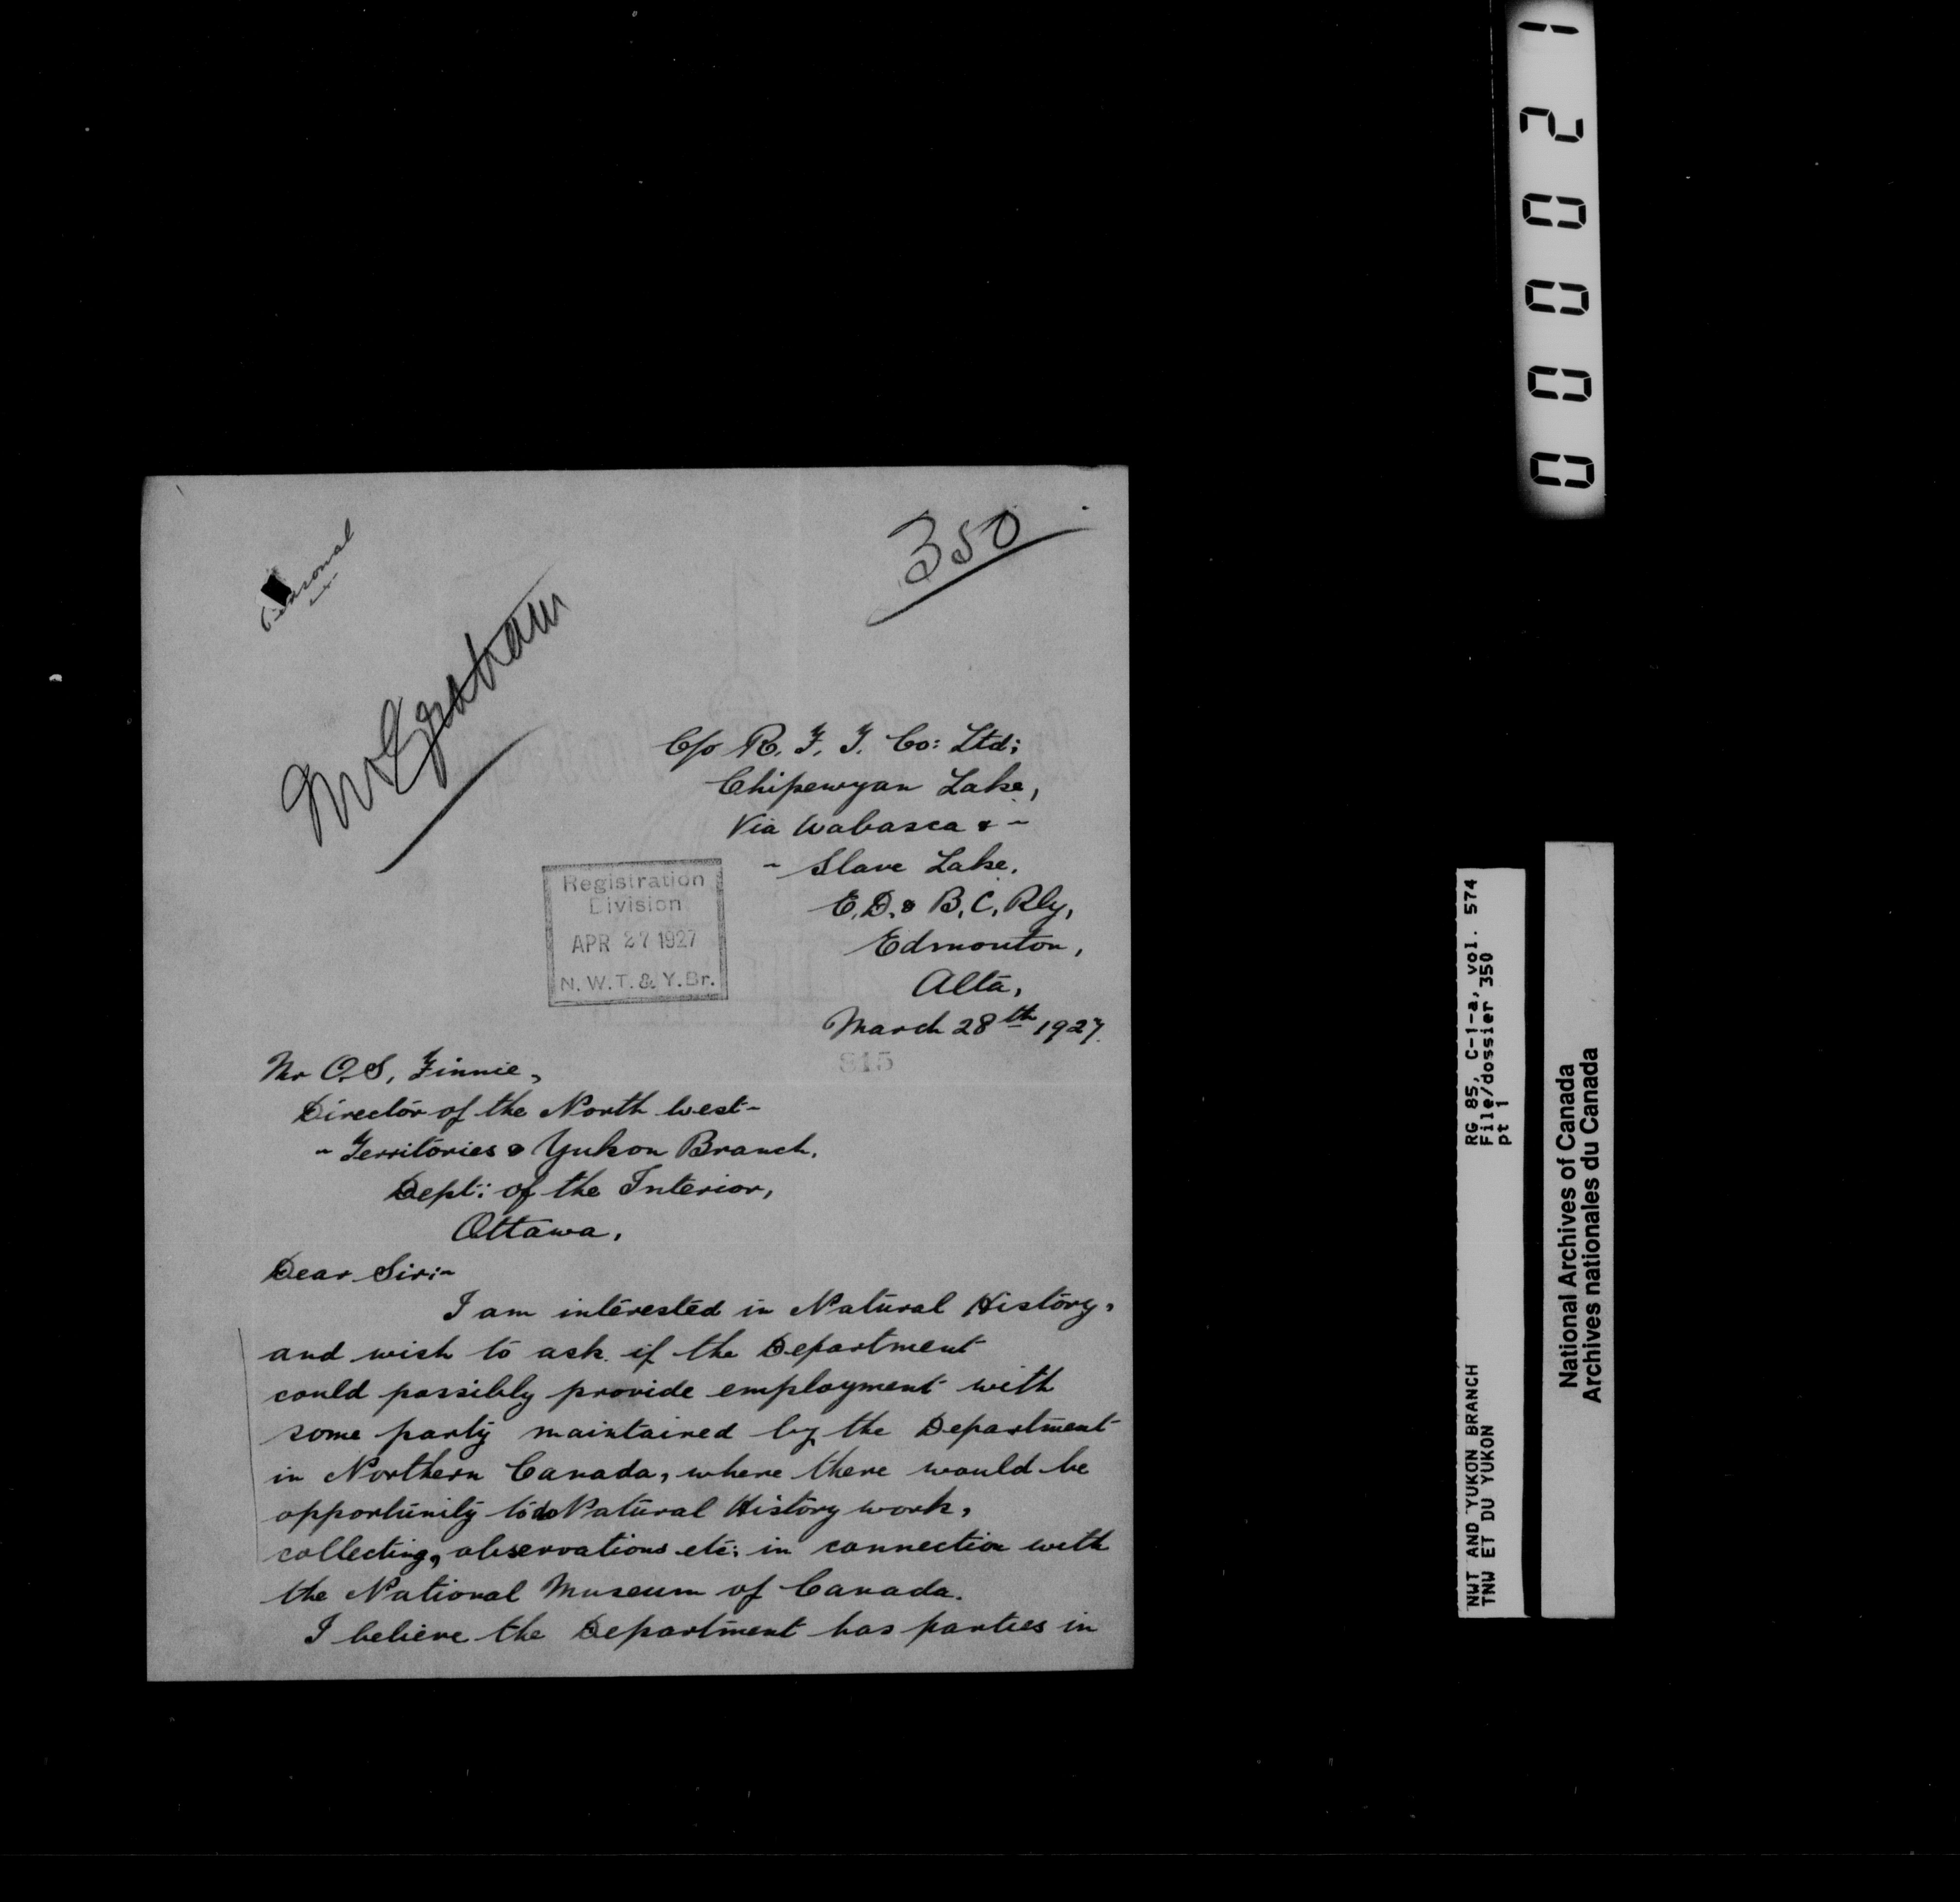 Personal
350
Mr Graham
C/o R. F. T. Co: Ltd;
Chipewyan Lake,
Via Wabasca & -
- Slave Lake,
E. D. & B. C. Rly,
Edmonton,
Alta,
March 28th 1927.
Registration
Division
APR 27 1927
N. W. T. & Y. Br.
815
Mr O. S. Finnie,
Director of the North West-
- Territories & Yukon Branch,
Dept: of the Interior,
Ottawa,
Dear Sir:-
I am interested in Natural History,
and wish to ask if the Department
could possibly provide employment with
some party maintained by the Department
in Northern Canada, where there would be
opportunity to do Natural History work,
collecting, observations etc: in connection with
the National Museum of Canada.
I believe the Department has parties in
000021
RG 85, C-1-a, vol. 574
File/dossier 350
pt 1
NWT AND YUKON BRANCH
TNW ET DU YUKON
National Archives of Canada
Archives nationales du Canada